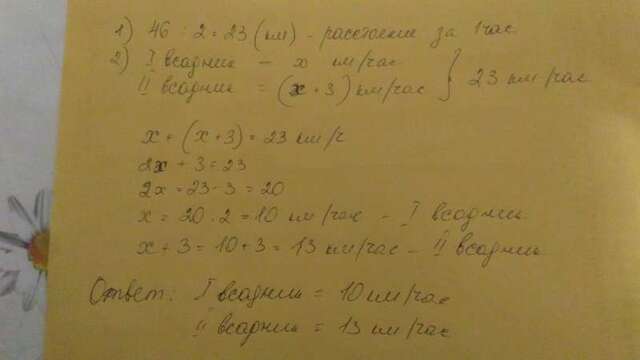 1) 46 : 2 = 23 (км) - расстояние за 1 час
2) I всадник - x км/час
II всадник = (x + 3) км/час } 23 км/час
x + (x + 3) = 23 км/ч
2x + 3 = 23
2x = 23 - 3 = 20
x = 20 : 2 = 10 км/час - I всадник
x + 3 = 10 + 3 = 13 км/час - II всадник
Ответ: I всадник = 10 км/час
II всадник = 13 км/час